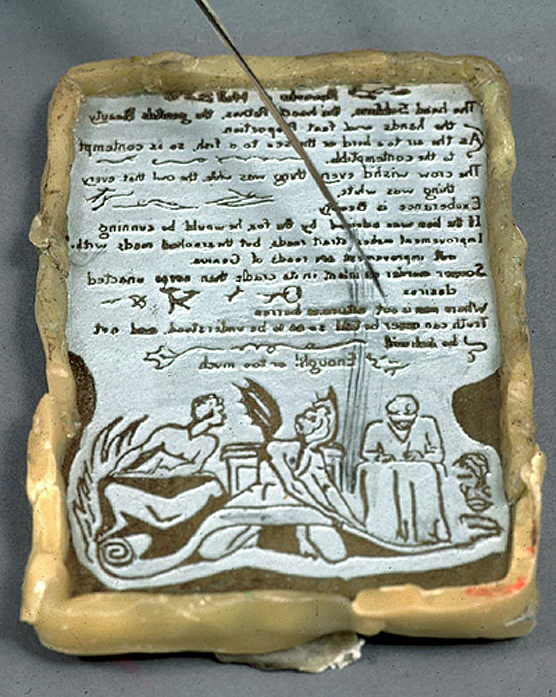 Proverbs Hell
The head Sublime, the heart Pathos, the genitals Beauty
the hands and feet Proportion.
As the air to a bird or the sea to a fish, so is contempt
to the contemptible.
The crow wish'd every thing was the owl that every
thing was white.
Exuberance is Beauty
If the lion was advised by the fox, he would be cunning
Improvement makes strait roads, but the crooked roads with-
out improvement are roads of Genius.
Sooner murder an infant in its cradle than nurse unacted
desires
Where man is not nature is barren
Truth can never be told so as to be understood, and not
be believ'd
Enough! or too much